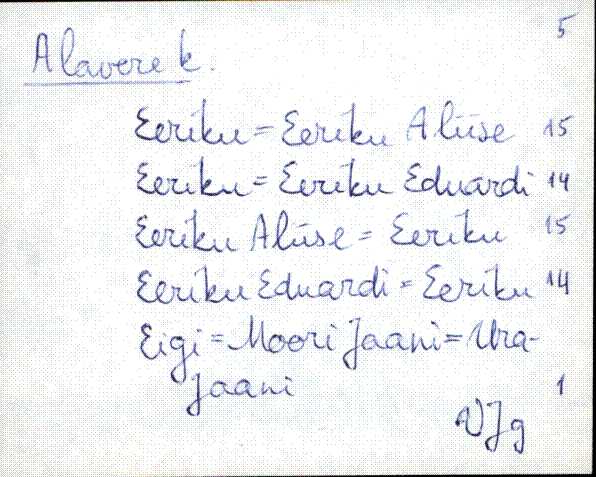 5
Alavere k.
Eeriku = Eeriku Aliise 15
Eeriku = Eeriku Eduardi 14
Eeriku Aliise = Eeriku 15
Eeriku Eduardi = Eeriku 14
Eigi = Moori Jaani = Ura-
Jaani 1
VJg